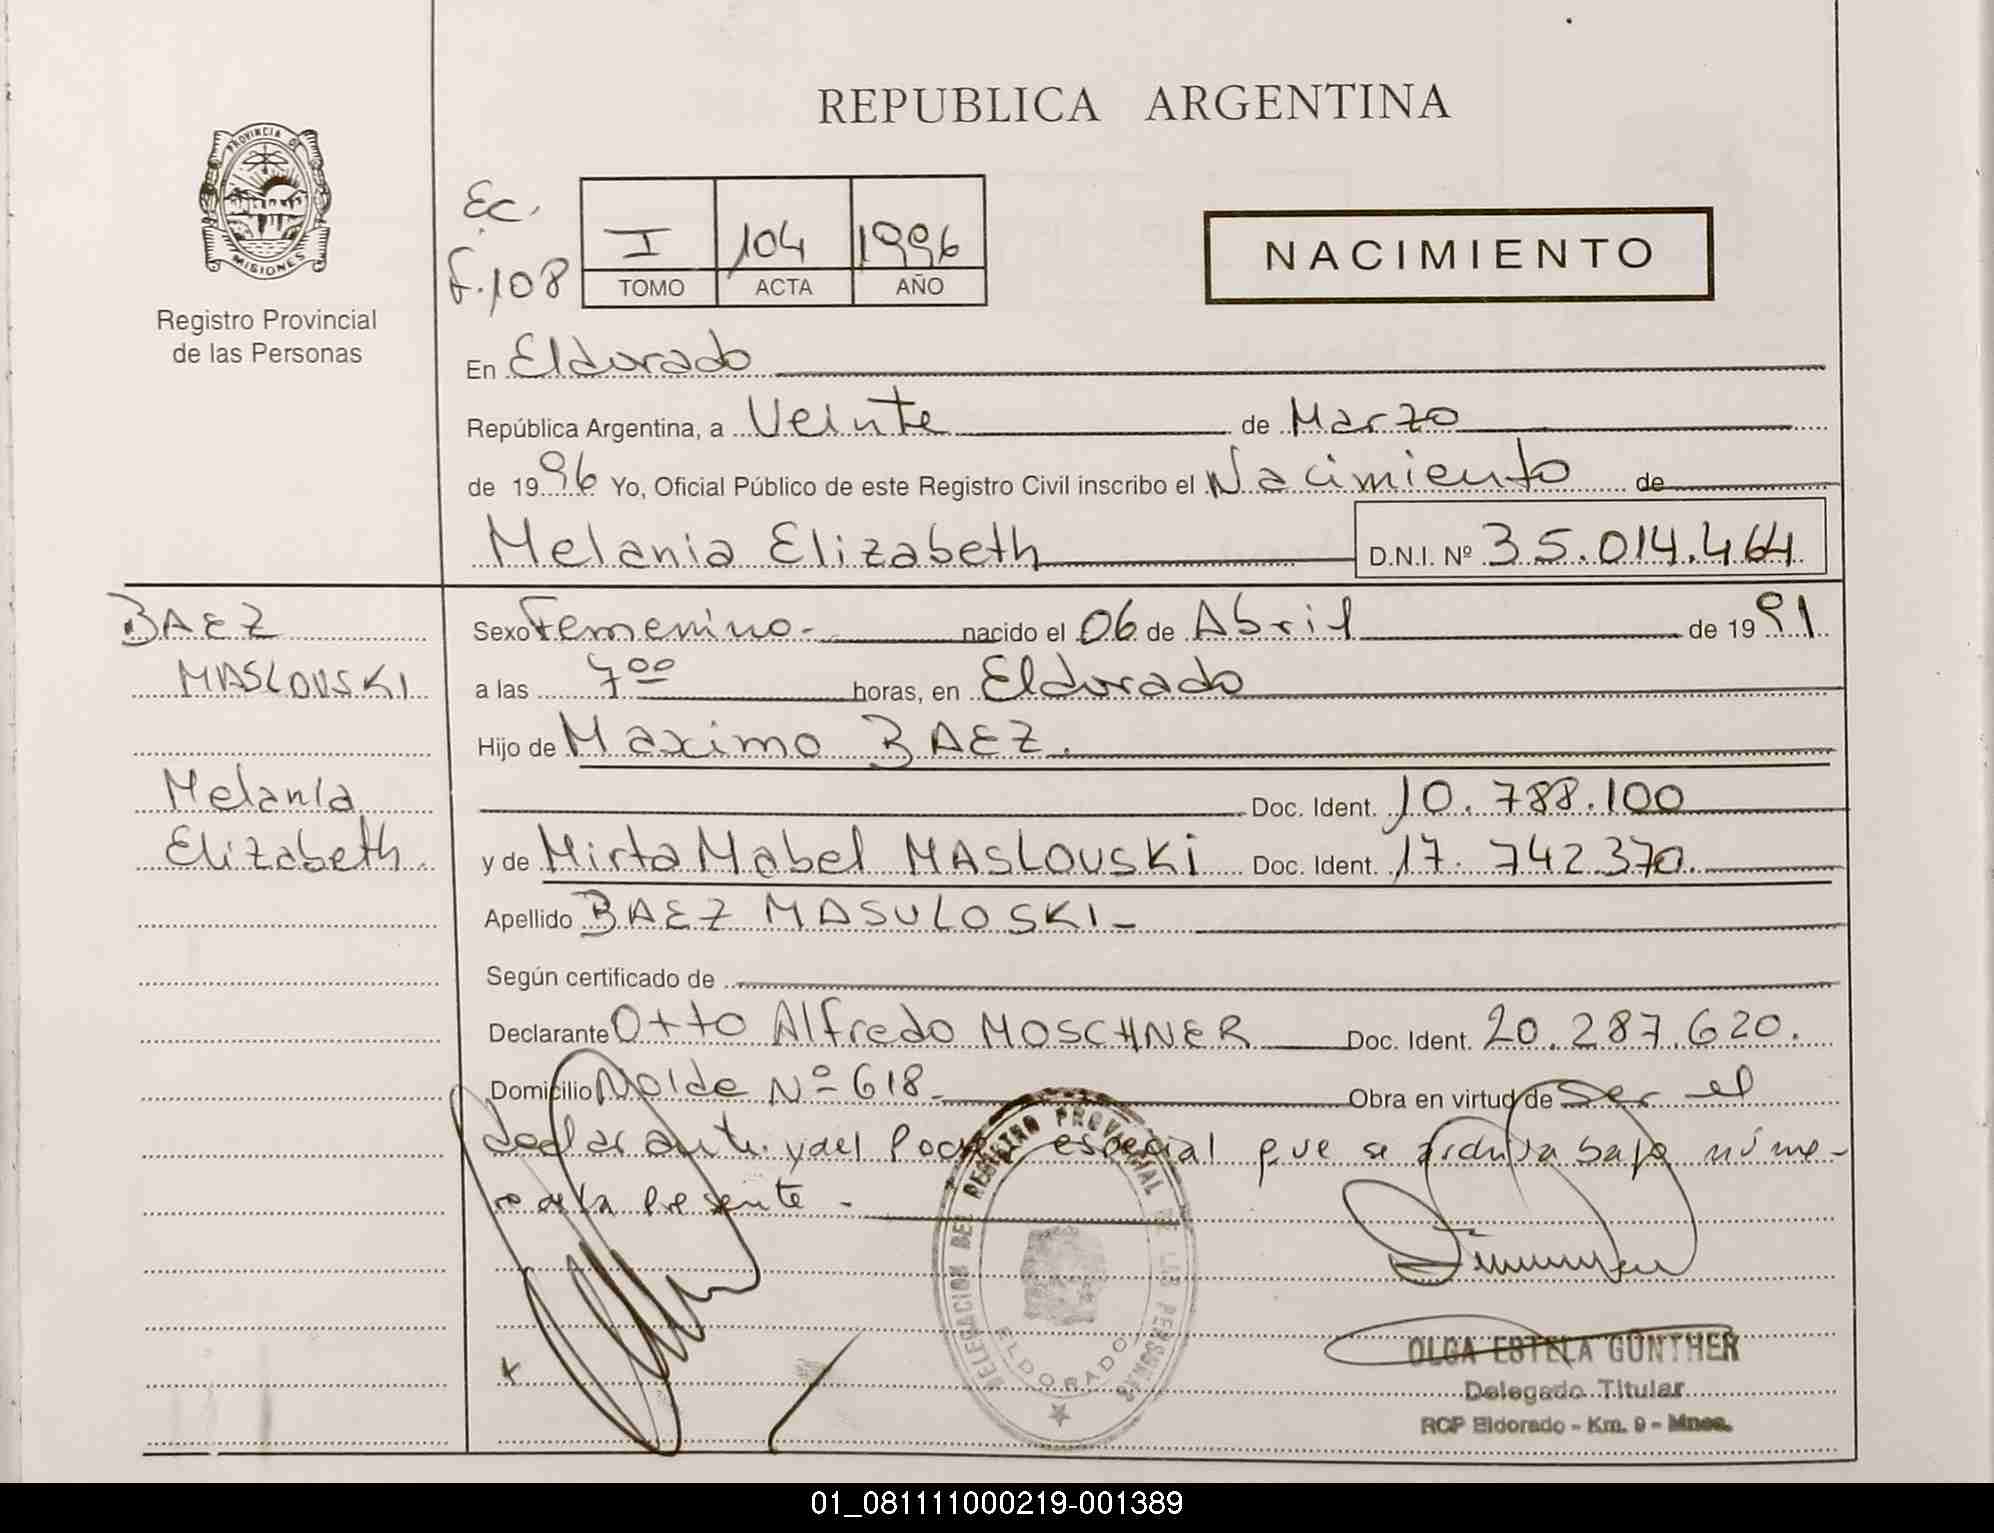 REPUBLICA ARGENTINA
PROVINCIA DE
MISIONES
Registro Provincial
de las Personas
Ec.
F.108
I 104 1996
TOMO ACTA AÑO
NACIMIENTO
En Eldorado
República Argentina, a Veinte de Marzo
de 1996 Yo, Oficial Público de este Registro Civil inscribo el Nacimiento de
Melania Elizabeth D.N.I. Nº 35.014.464
BAEZ
MASLOUSKI
Melania
Elizabeth.
Sexo Femenino.- nacido el 06 de Abril de 1991
a las 7 00 horas, en Eldorado
Hijo de Maximo BAEZ.
Doc. Ident. 10.788.100
y de Mirta Mabel MASLOUSKI Doc. Ident. 17.742.370.
Apellido BAEZ MASULOSKI-
Según certificado de
Declarante Otto Alfredo MOSCHNER Doc. Ident. 20.287.620.
Domicilio Nolde Nº 618- Obra en virtud de ser el
declarante y del Poder especial que se archiva bajo núme-
ro de la presente-
DELEGACION DEL REGISTRO PROVINCIAL DE LAS PERSONAS
ELDORADO
OLGA ESTELA GUNTHER
Delegado Titular
RCP Eldorado - Km. 9 - Mnes.
01_081111000219-001389